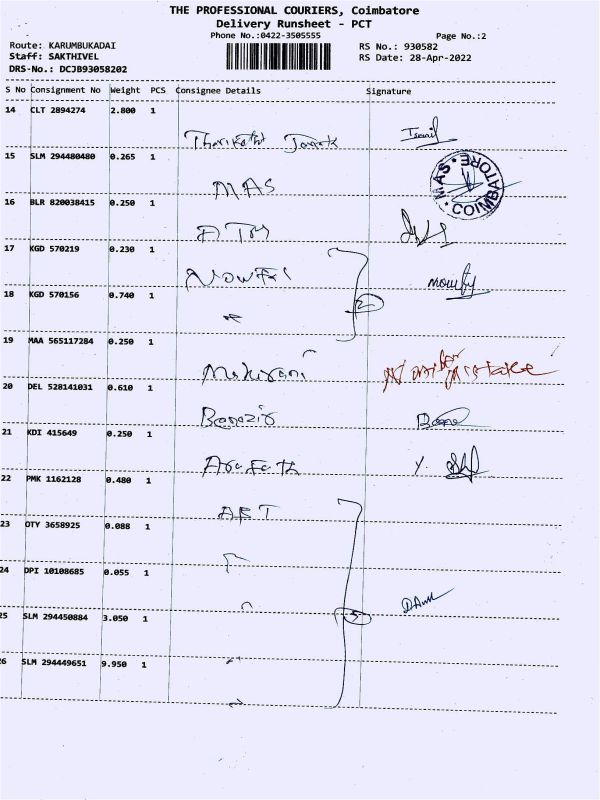 THE PROFESSIONAL COURIERS, Coimbatore
Delivery Runsheet - PCT
Phone No.:0422-3505555
Page No.:2
Route: KARUMBUKADAI
RS No.: 930582
Staff: SAKTHIVEL
RS Date: 28-Apr-2022
DRS-No.: DCJB93058202
S No Consignment No Weight PCS Consignee Details Signature
14 CLT 2894274 2.800 1
15 SLM 294480480 0.265 1
MAS
MAS COIMBATORE
16 BLR 820038415 0.250 1
17 KGD 570219 0.230 1
18 KGD 570156 0.740 1
2
19 MAA 565117284 0.250 1
mistake
20 DEL 528141031 0.610 1
Benazir
21 KDI 415649 0.250 1
Arafath
22 PMK 1162128 0.480 1
ART
23 OTY 3658925 0.088 1
24 DPI 10108685 0.055 1
25 SLM 294450884 3.050 1
5
26 SLM 294449651 9.950 1